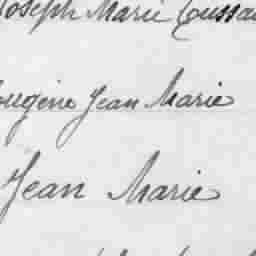 Joseph Marie Toussa
Eugène Jean Marie
Jean Marie